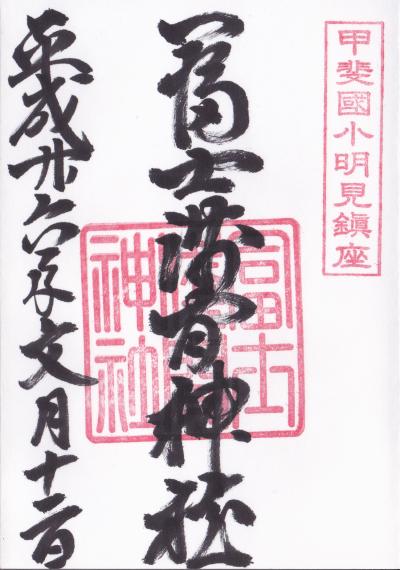 甲斐國小明見鎭座
冨士浅間神社
平成廿六年文月十二日
冨士
神社